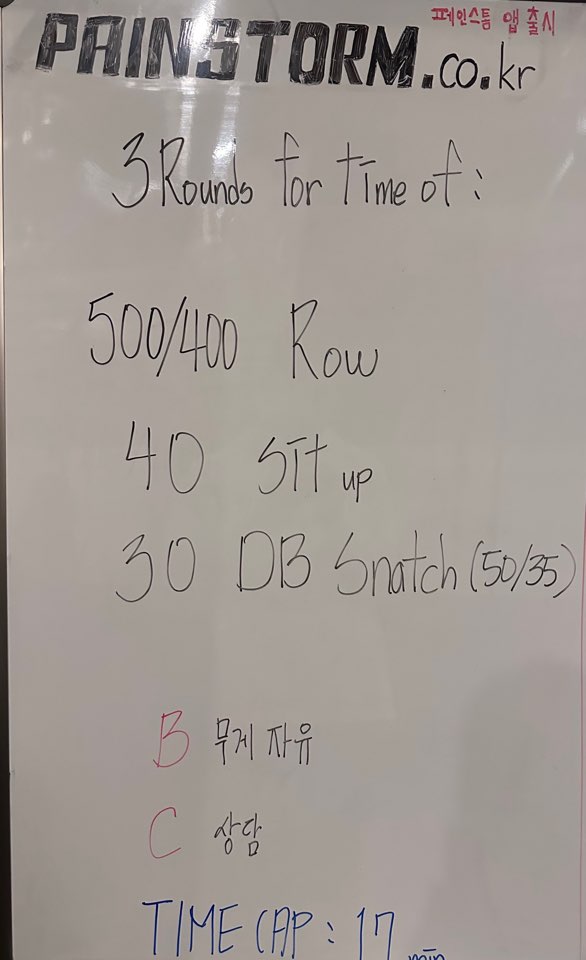 페인스톰 앱 출시
PAINSTORM.co.kr
3 Rounds for time of :
500/400 Row
40 Sit up
30 DB Snatch (50/35)
B 무게 자유
C 상담
TIME CAP : 17 min